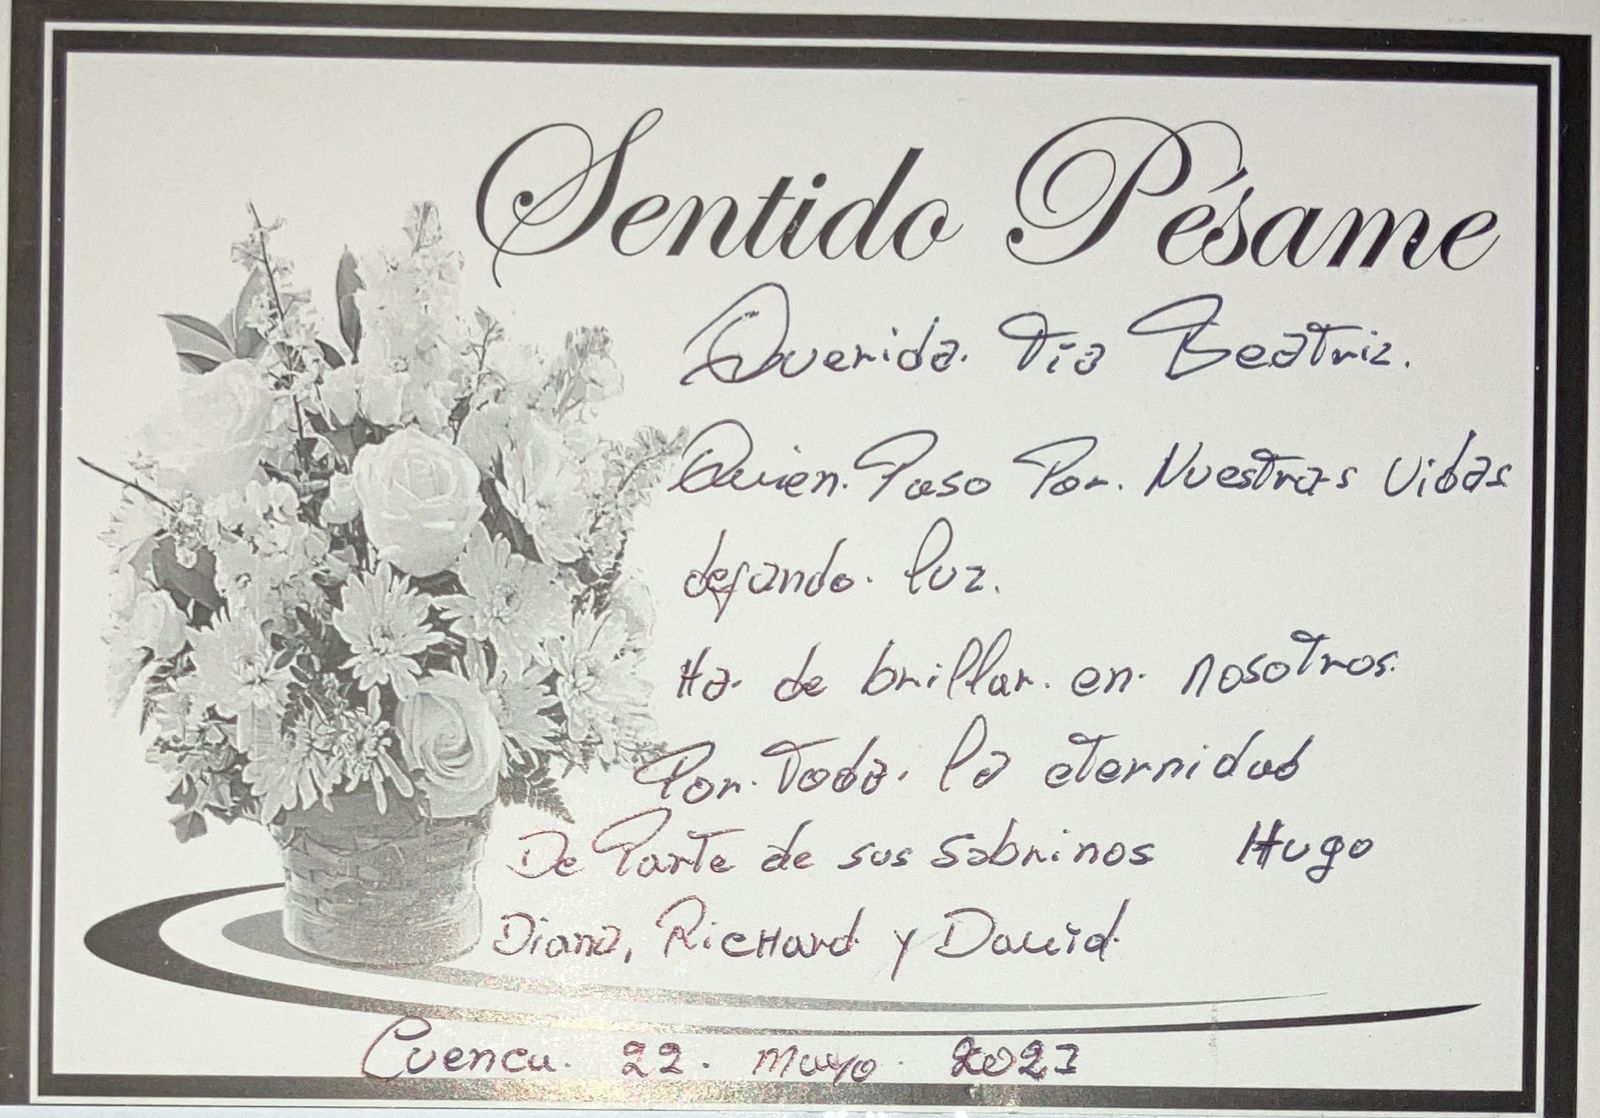 Sentido Pésame
Querida. Tía Beatriz.
Quien. Paso Por. Nuestras vidas
dejando. luz.
Ha. de brillar. en. nosotros.
Por. Toda. la eternidad
De Parte de sus sobrinos Hugo
Diana, Richard y David.
Cuenca. 22. mayo. 2023